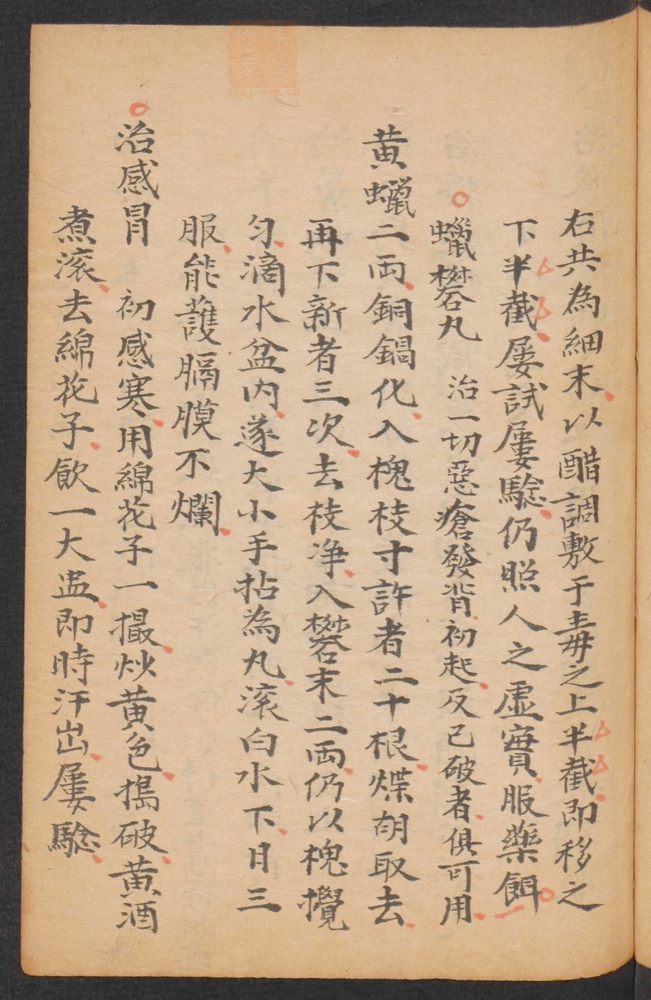 右共為細末以醋調敷于毒之上半截即移之
下半截屡試屡驗仍照人之虛實服藥餌
蠟礬丸　治一切惡瘡發背初起及已破者俱可用
黃蠟二兩銅鍋化入槐枝寸許者二十根煠胡取去
再下新者三次去枝净入礬末二兩仍以槐攪
勻滴水盆内遂大小手拈為丸滚白水下日三
服能護膈膜不爛
治感冒　初感寒用綿花子一撮炒黃色搗破黃酒
煮滚去綿花子飲一大盅即時汗出屡驗